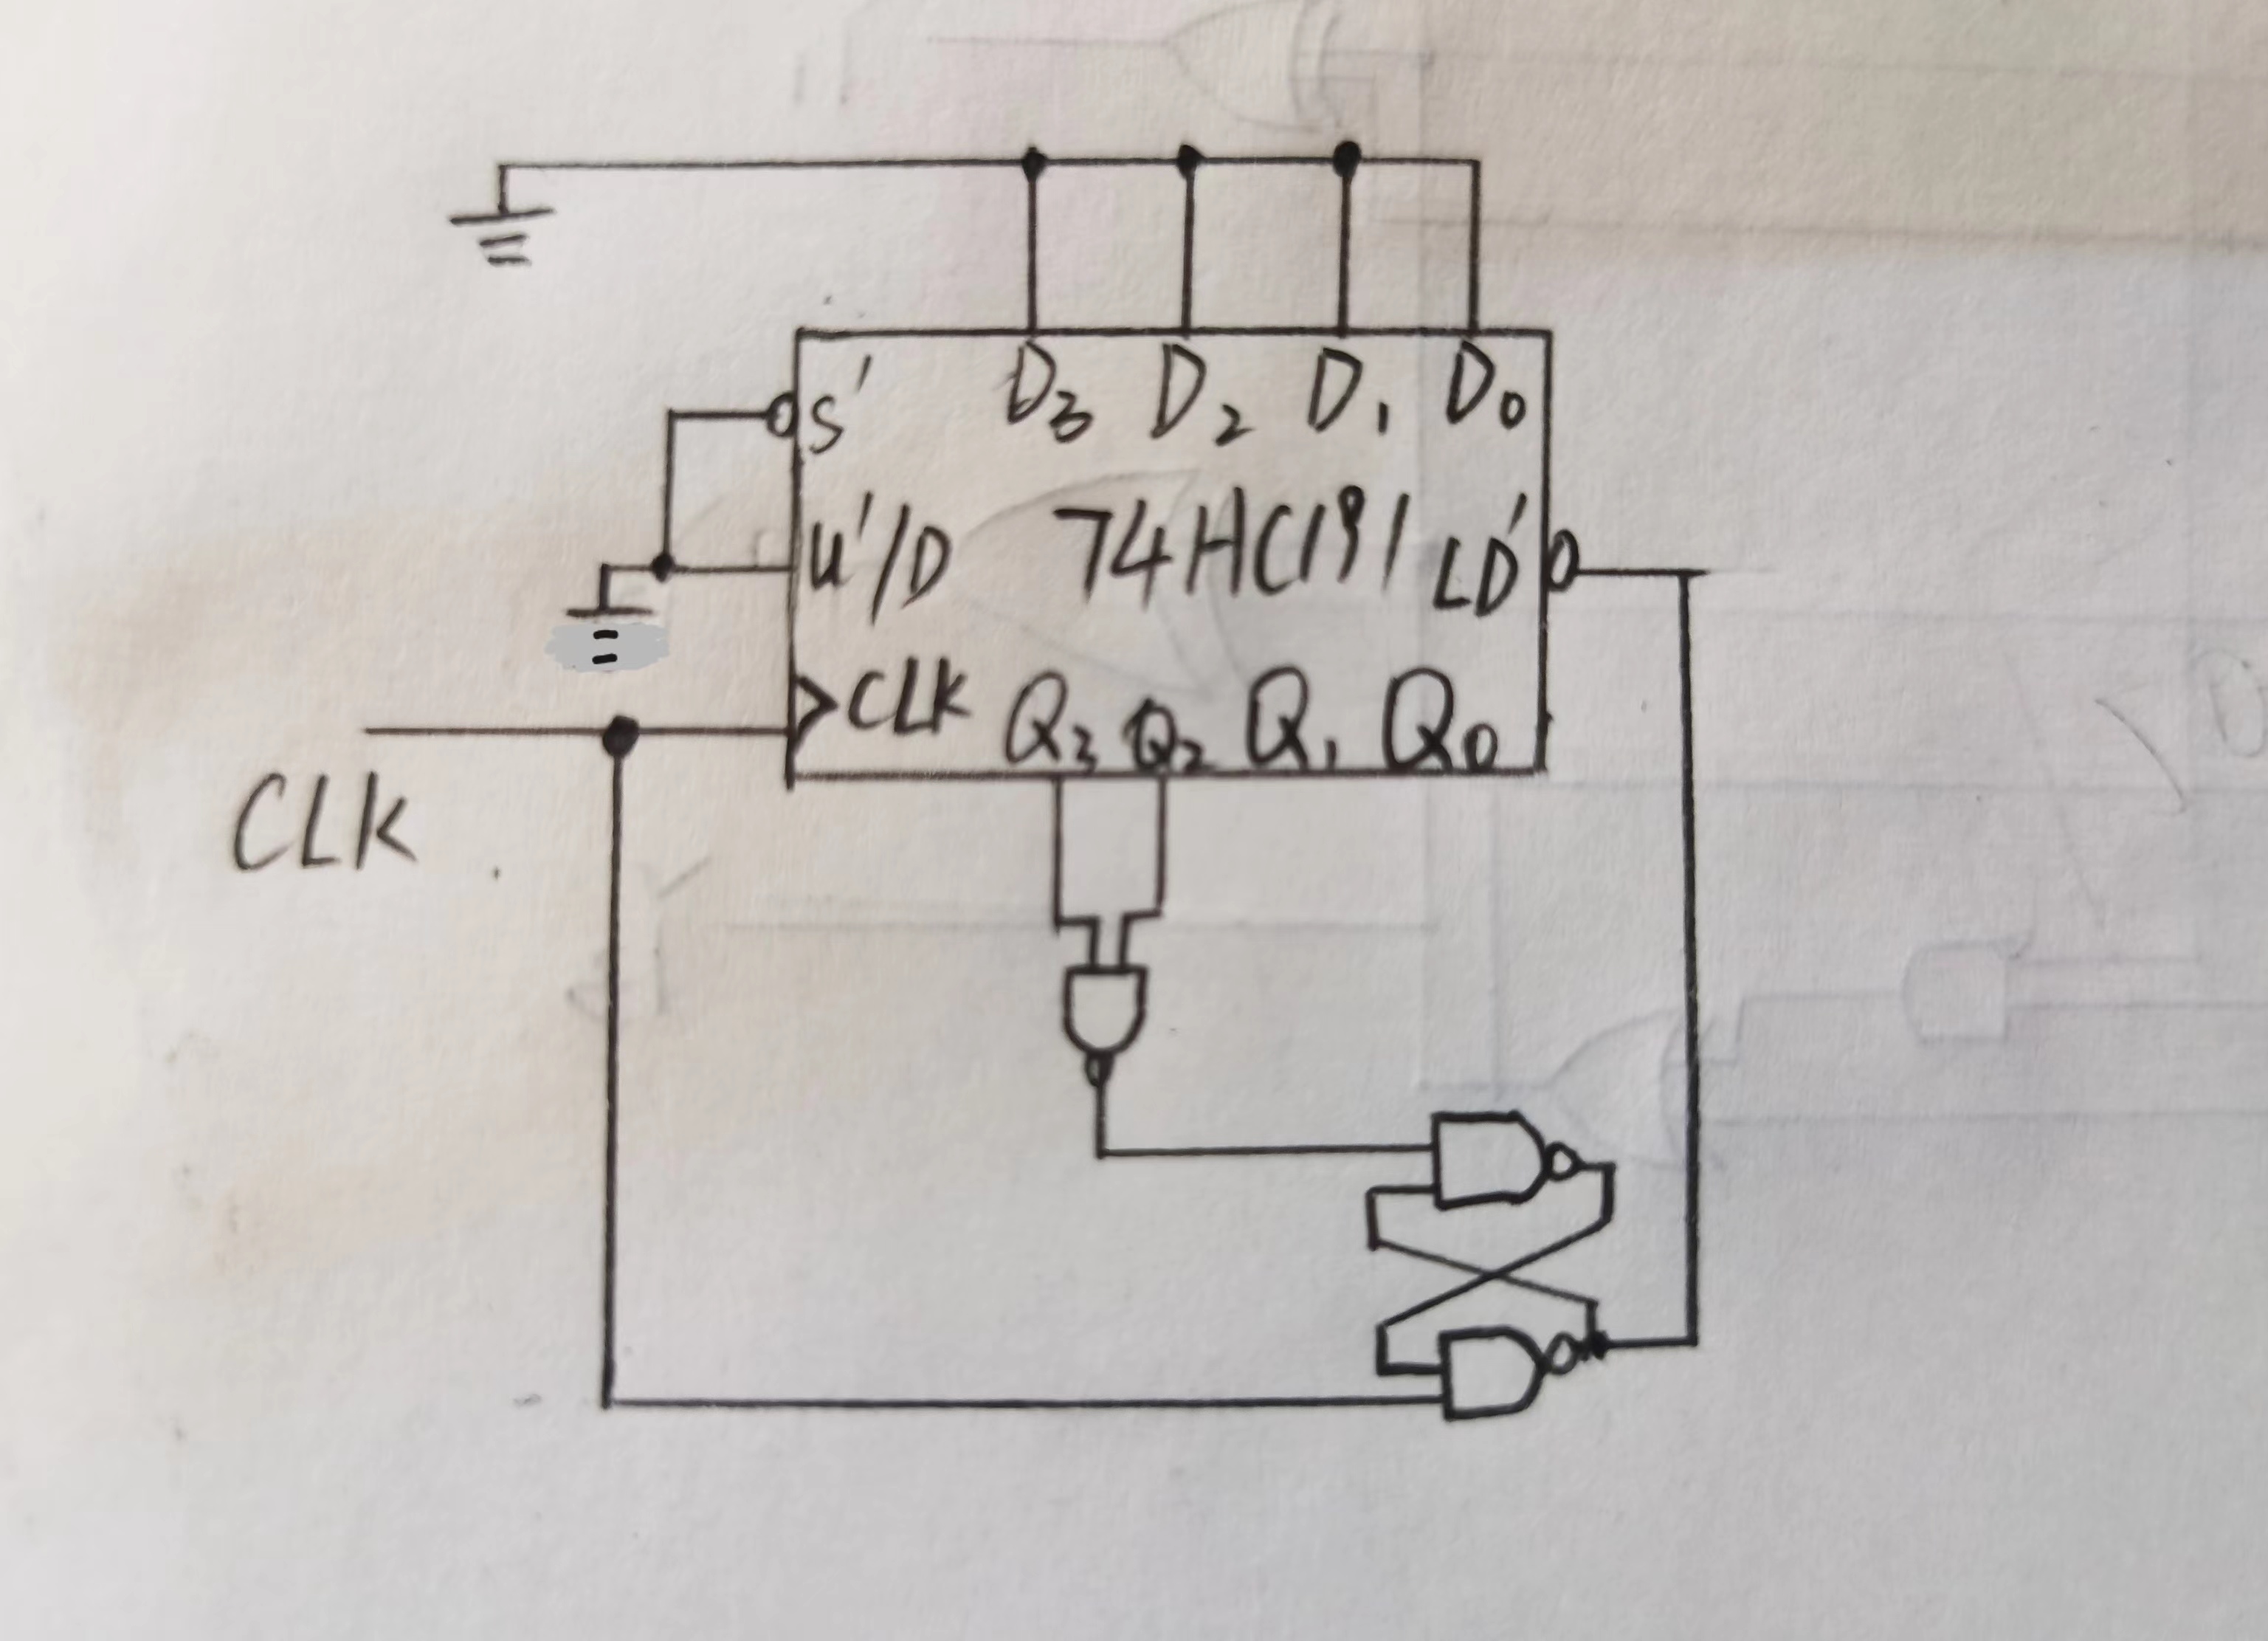 D₃ D₂ D₁ D₀
S'
U'/D 74HC191 LD'
CLK Q₃ Q₂ Q₁ Q₀
CLK